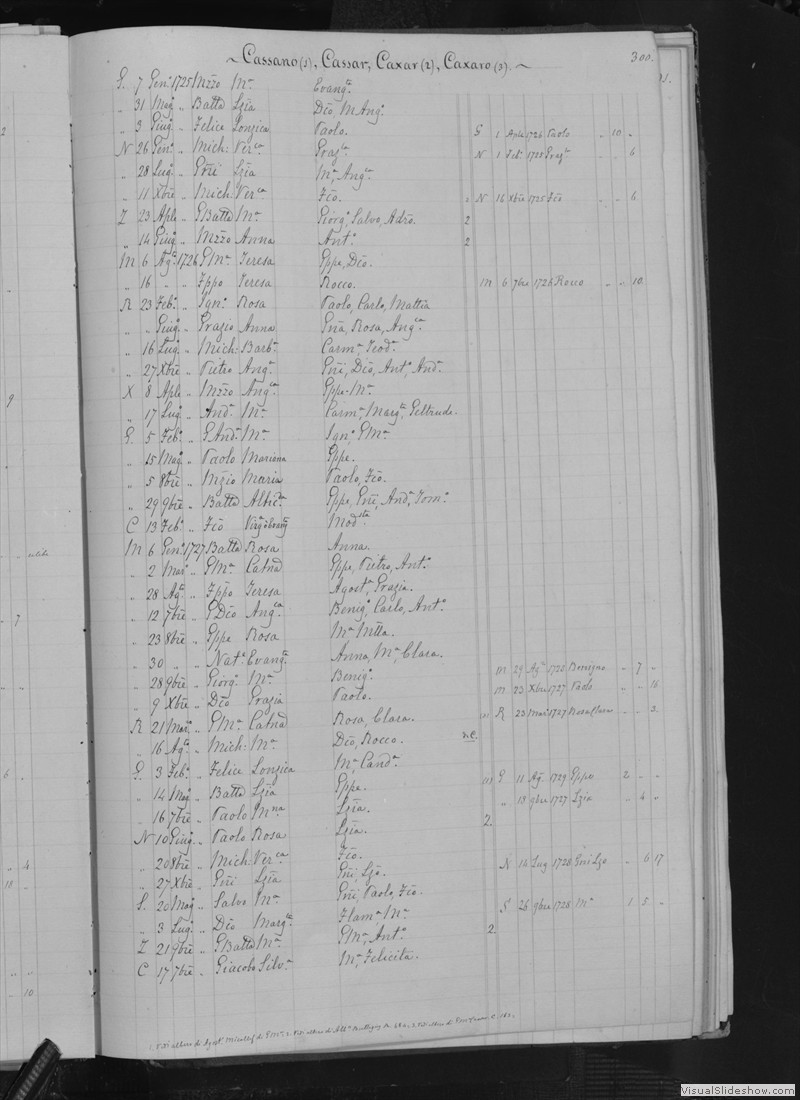 ~ Cassano (1), Cassar, Caxar (2), Caxaro (3). ~ 300.
G. 7 Gen.º 1725 Mzzo M.ª Evang.ta
" 31 Mag.º " Batta Lzia Dio, M Ang.ª
" 3 Giug.º " Felice Lonzica Paolo. G 1 Aple 1726 Paolo " 10 "
N 26 Gen.º " Mich: Ver.ca Graz.la N 1 Feb.º 1728 Graz.la " " 6
" 28 Lug.º " Gñi Lzia M.ª Ang.ca
" 11 Xbre " Mich: Ver.ca Fco. N 16 Xbre 1725 Fco " " 6
Z 23 Aple " GBatta M.ª Giorg.º, Salvo, Adro. 2
" 14 Giug.º " Mzzo Anna Ant.º 2
M 6 Ag.º 1726 GM.ª Teresa Gppe, Dio.
" 16 " " Fppo Teresa Rocco. M 6 7bre 1726 Rocco " " 10
R 23 Feb.º " Ign.º Rosa Paolo, Carlo, Mattia
" " Giug.º " Grazio Anna Gña, Rosa, Ang.ca
" 16 Lug.º " Mich: Barb.ª Carm.ª, Teod.ª
" 27 Xbre " Pietro Ang.ª Gñi, Dio, Ant.º, And.ª
X 8 Aple " Mzzo Ang.ca Gppe-M.ª
" 17 Lug.º " And.ª M.ª Carm.ª, Marg.ta, Geltruda.
G. 5 Feb.º " G And.ª M.ª Ign.º, GM.ª
" 15 Mag.º " Paolo Mariona Gppe.
" 5 8bre " Mzio Maria Paolo, Fco.
" 29 9bre " Batta Albic.ª Gppe, Gñi, And.ª, Tom.º
C 13 Feb.º " Fco Mod.sta
M 6 Gen.º 1727 Batta Rosa Anna.
" 2 Mar.º " GM.ª Catna Gppe, Pietro, Ant.º
" 28 Ag.º " Fppo Teresa Agost.ª, Grazia.
" 12 7bre " G Dio Ang.ca Benig.º, Carlo, Ant.º
" 23 8bre " Gppe Rosa M.ª Mtta.
" 30 " " Nat.e Evang.ta Anna, M.ª, Clara.
" 28 9bre " Giorg.º M.ª Benig.º M 29 Ag.º 1728 Benigno " 7 "
" 9 Xbre " Dio Grazia Paolo. M 23 Xbre 1727 Paolo " " 16
R 21 Mar.º " GM.ª Catna Rosa, Clara. (1) R 23 Mar.º 1727 Rosa Clara " " 2
" 16 Ag.º " Mich: M.ª Dio, Rocco. n.C.
G. 3 Feb.º " Felice Lonzica M.ª Cand.ª
" 14 Mag.º " Batta Lzia Gppe. (1) G 11 Ag.º 1729 Gppe 2 " "
" 16 7bre " Paolo M.na Lzia. " 18 9bre 1727 Lzia " 4 "
N 10 Giug.º " Paolo Rosa Lzia. 2.
" 20 8bre " Mich: Ver.ca Fco.
" 27 Xbre " Gñi Lzia Gñi, Lzo. N 14 Lug.º 1728 Gñi Lzo " 6 17
S. 20 Mag.º " Salvo M.ª Gñi, Paolo, Fco.
" 3 Lug.º " Dio Marg.ta Flam.ª M.ª S 26 9bre 1728 M.ª 1 5 "
Z 21 9bre " GBatta M.ª GM.ª, Ant.º 2.
C 17 7bre " Giacobo Silv.ª M.ª, Felicita.
VisualSlideshow.com